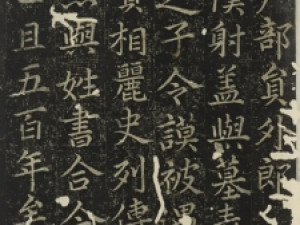 部貟外郎
僕射盖嶼墓
之子令謨被
相麗史列傳
與姓書合
且五百年矣